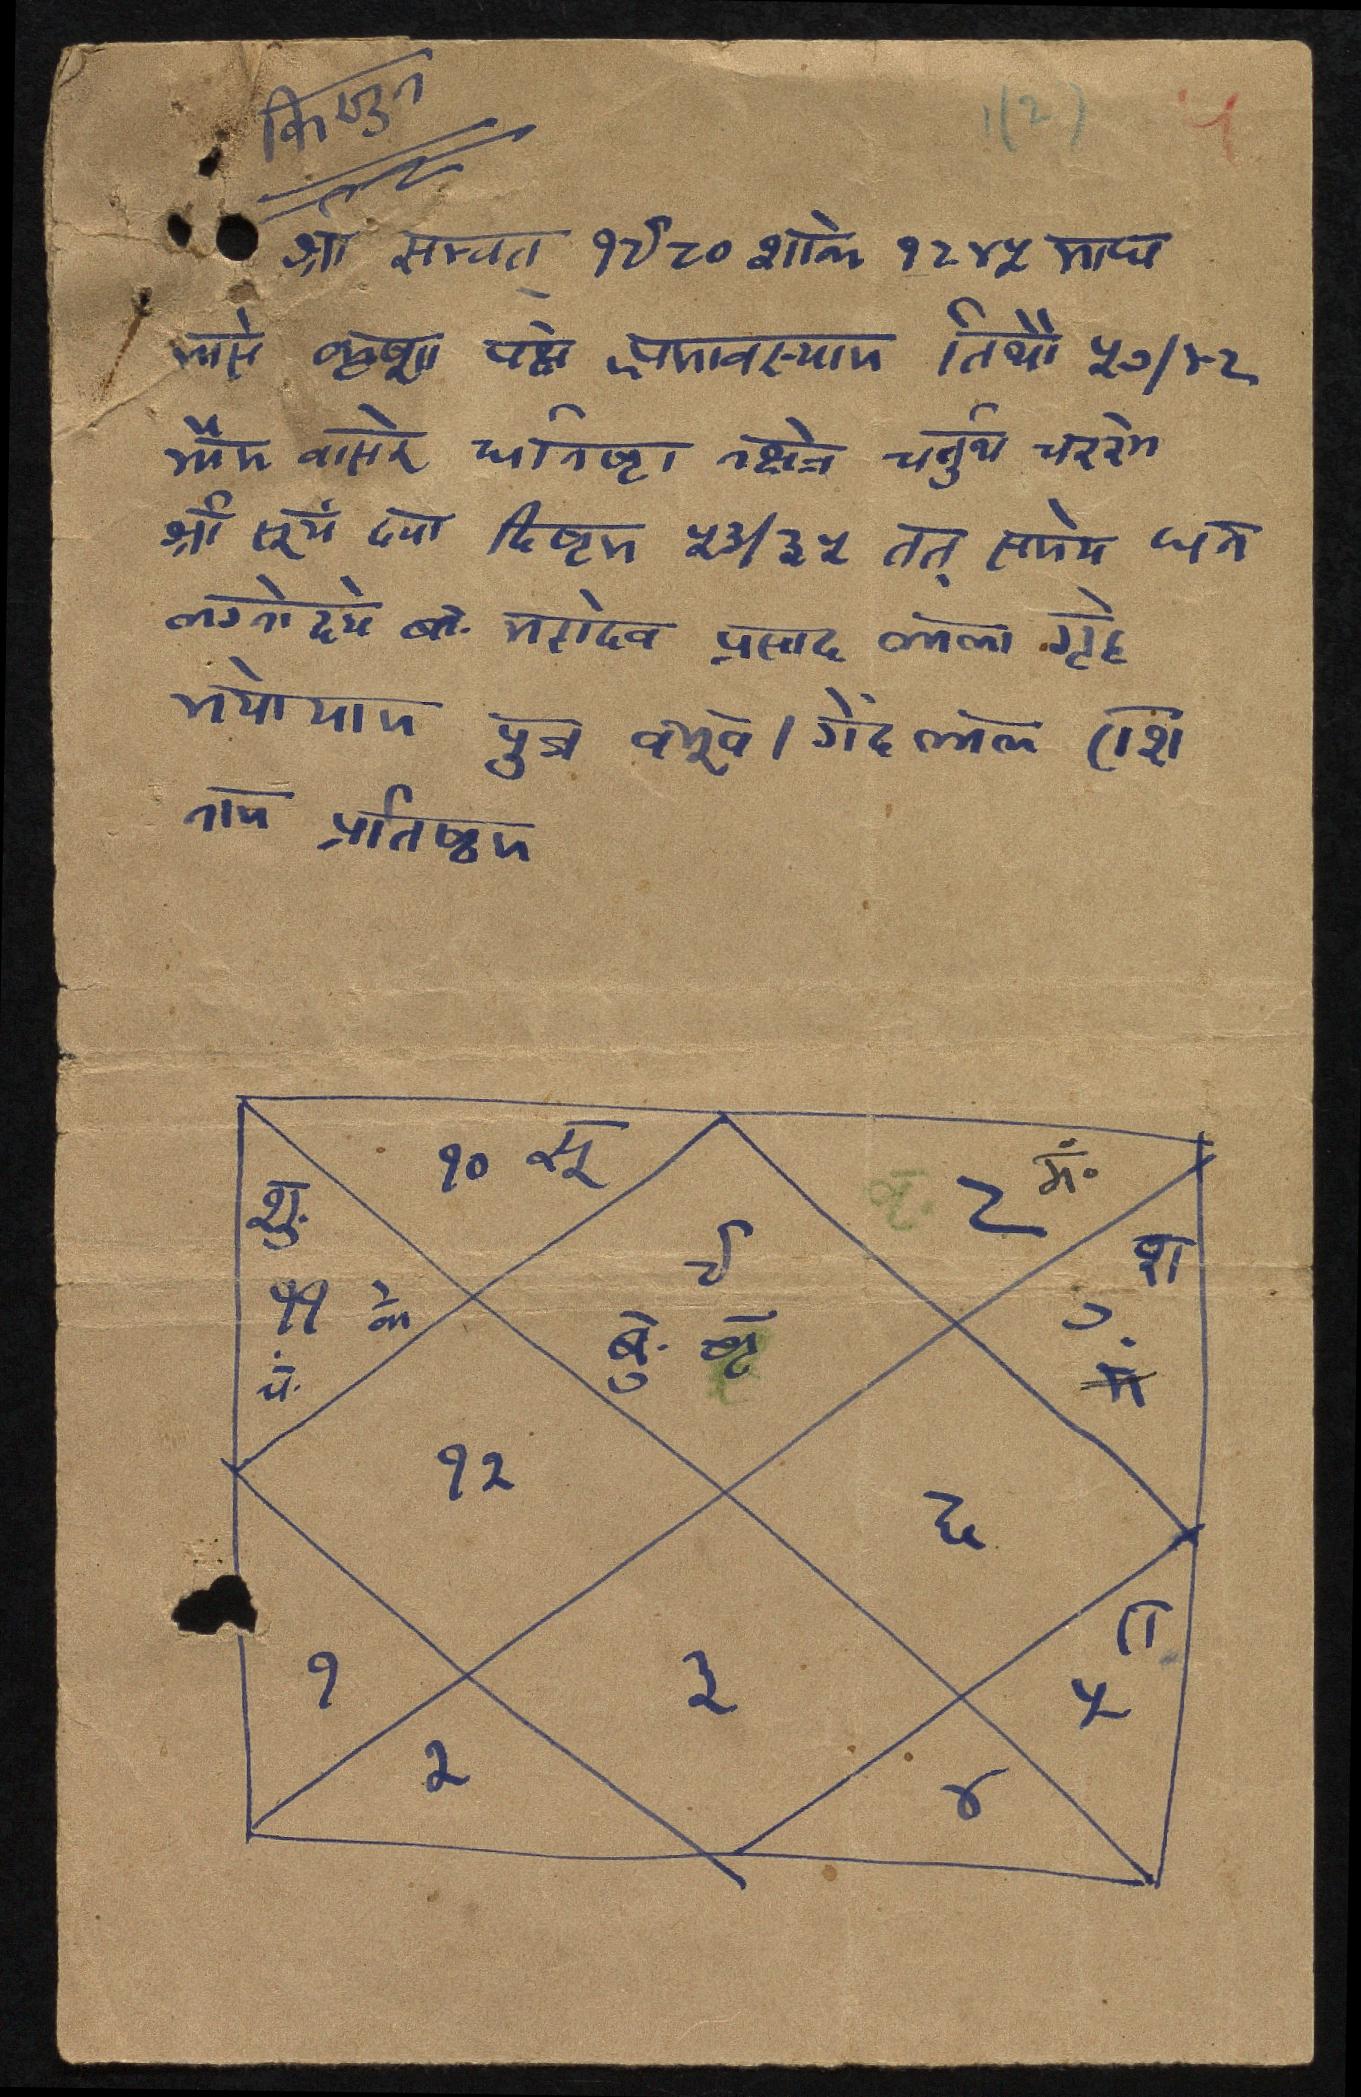 किशुन
1(2)
श्री सम्वत् १९८० शाके १८४५ माघ
मासे कृष्ण पक्षे अमावस्याम तिथौ ५७/४८
भौम वासरे धनिष्ठा नक्षत्रे चर्तुथ चररेन
श्री सूर्य दयो दिष्टम ५३/३५ तत् समये धन
लग्नोदये बा. महादेव प्रसाद लाला गृहे
भार्यायाम पुत्र वभूव। गेंदालाल राशि
नाम प्रतिष्ठम
१० सू
८ मं॰
शु.
११ के
चं.
९
बु. बृ
श
७.
१२
६
१
३
रा
५
२
४